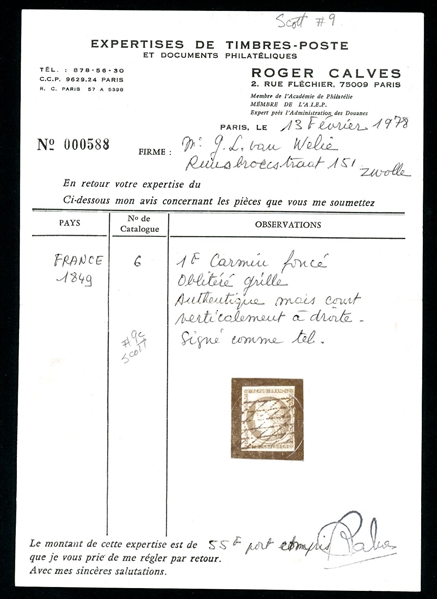 Scott #9
EXPERTISES DE TIMBRES-POSTE
ET DOCUMENTS PHILATÉLIQUES
TÉL. : 878-56-30
C.C.P. 9629.24 PARIS
R. C. PARIS 57 A 5398
ROGER CALVES
2, RUE FLÉCHIER, 75009 PARIS
Membre de l'Académie de Philatélie
MEMBRE DE L'A.I.E.P.
Expert près l'Administration des Douanes
PARIS, LE 13 Février 1978
No 000588
FIRME : Mr J.L. van Welie
Ruusbroecstraat 151
Zwolle
En retour votre expertise du
Ci-dessous mon avis concernant les pièces que vous me soumettez
PAYS
No de Catalogue
OBSERVATIONS
FRANCE
1849
6
1F Carmin foncé
Oblitéré grille
Authentique mais court
verticalement à droite.
Signé comme tel.
#9c
Scott
Le montant de cette expertise est de 55F port compris
que je vous prie de me régler par retour.
Avec mes sincères salutations.
Calves